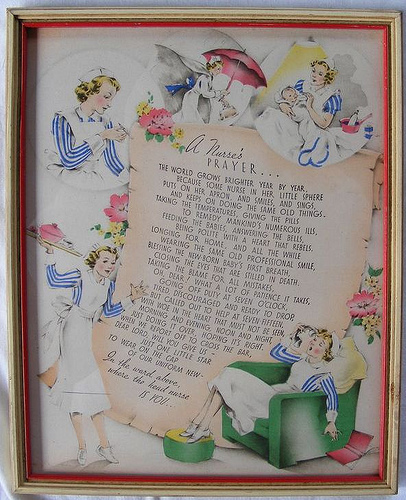 A Nurse's
PRAYER...
THE WORLD GROWS BRIGHTER YEAR BY YEAR,
BECAUSE SOME NURSE IN HER LITTLE SPHERE
PUTS ON HER APRON, AND SMILES, AND SINGS,
AND KEEPS ON DOING THE SAME OLD THINGS.
TAKING THE TEMPERATURES, GIVING THE PILLS
TO REMEDY MANKIND'S NUMEROUS ILLS,
FEEDING THE BABIES, ANSWERING THE BELLS,
BEING POLITE WITH A HEART THAT REBELS.
LONGING FOR HOME, AND ALL THE WHILE
WEARING THE SAME OLD PROFESSIONAL SMILE,
BLESSING THE NEW-BORN BABY'S FIRST BREATH,
CLOSING THE EYES THAT ARE STILLED IN DEATH.
TAKING THE BLAME FOR ALL MISTAKES,
OH, DEAR! WHAT A LOT OF PATIENCE IT TAKES,
GOING OFF DUTY AT SEVEN O'CLOCK
TIRED, DISCOURAGED AND READY TO DROP
BUT CALLED ON TO HELP AT SEVEN FIFTEEN,
WITH WOE IN THE HEART THAT MUST NOT BE SEEN
MORNING AND EVENING, NOON AND NIGHT,
JUST DOING IT OVER, HOPING IT'S RIGHT.
WHEN WE REPORT OFF TO CROSS THE BAR,
DEAR LORD, WILL YOU GIVE US
JUST ONE LITTLE STAR
TO WEAR ON THE CAP
OF OUR UNIFORM NEW-
In the ward above,
where the head nurse
IS YOU...